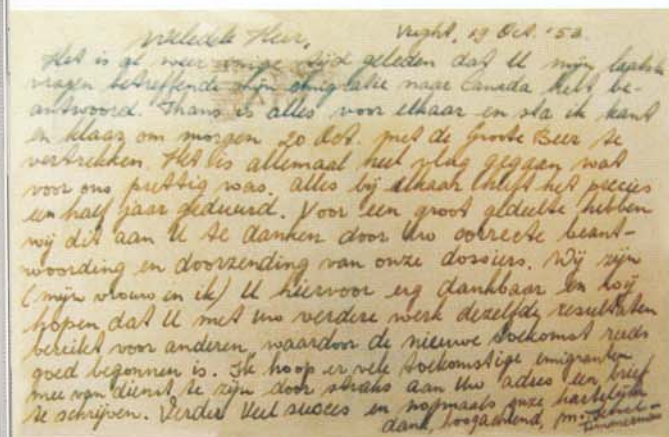 Weledele Heer, Vught, 19 Oct. '53.
Het is al weer enige tijd geleden dat U mijn laatste
vragen betreffende mijn emigratie naar Canada hebt be-
antwoord. Thans is alles voor elkaar en sta ik kant
en klaar om morgen 20 Oct. met de Groote Beer te
vertrekken. Het is allemaal heel vlug gegaan wat
voor ons prettig was. alles bij elkaar heeft het precies
een half jaar geduurd. Voor een groot gedeelte hebben
wij dit aan U te danken door uw correcte beant-
woording en doorzending van onze dossiers. Wij zijn
(mijn vrouw en ik) U hiervoor erg dankbaar en wij
hopen dat U met uw verdere werk dezelfde resultaten
bereikt voor anderen, waardoor de nieuwe toekomst reeds
goed begonnen is. Ik hoop er vele toekomstige emigranten
mee van dienst te zijn door straks aan Uw adres een brief
te schrijven. Verder veel succes en nogmaals onze hartelijke
dank, hoogachtend,